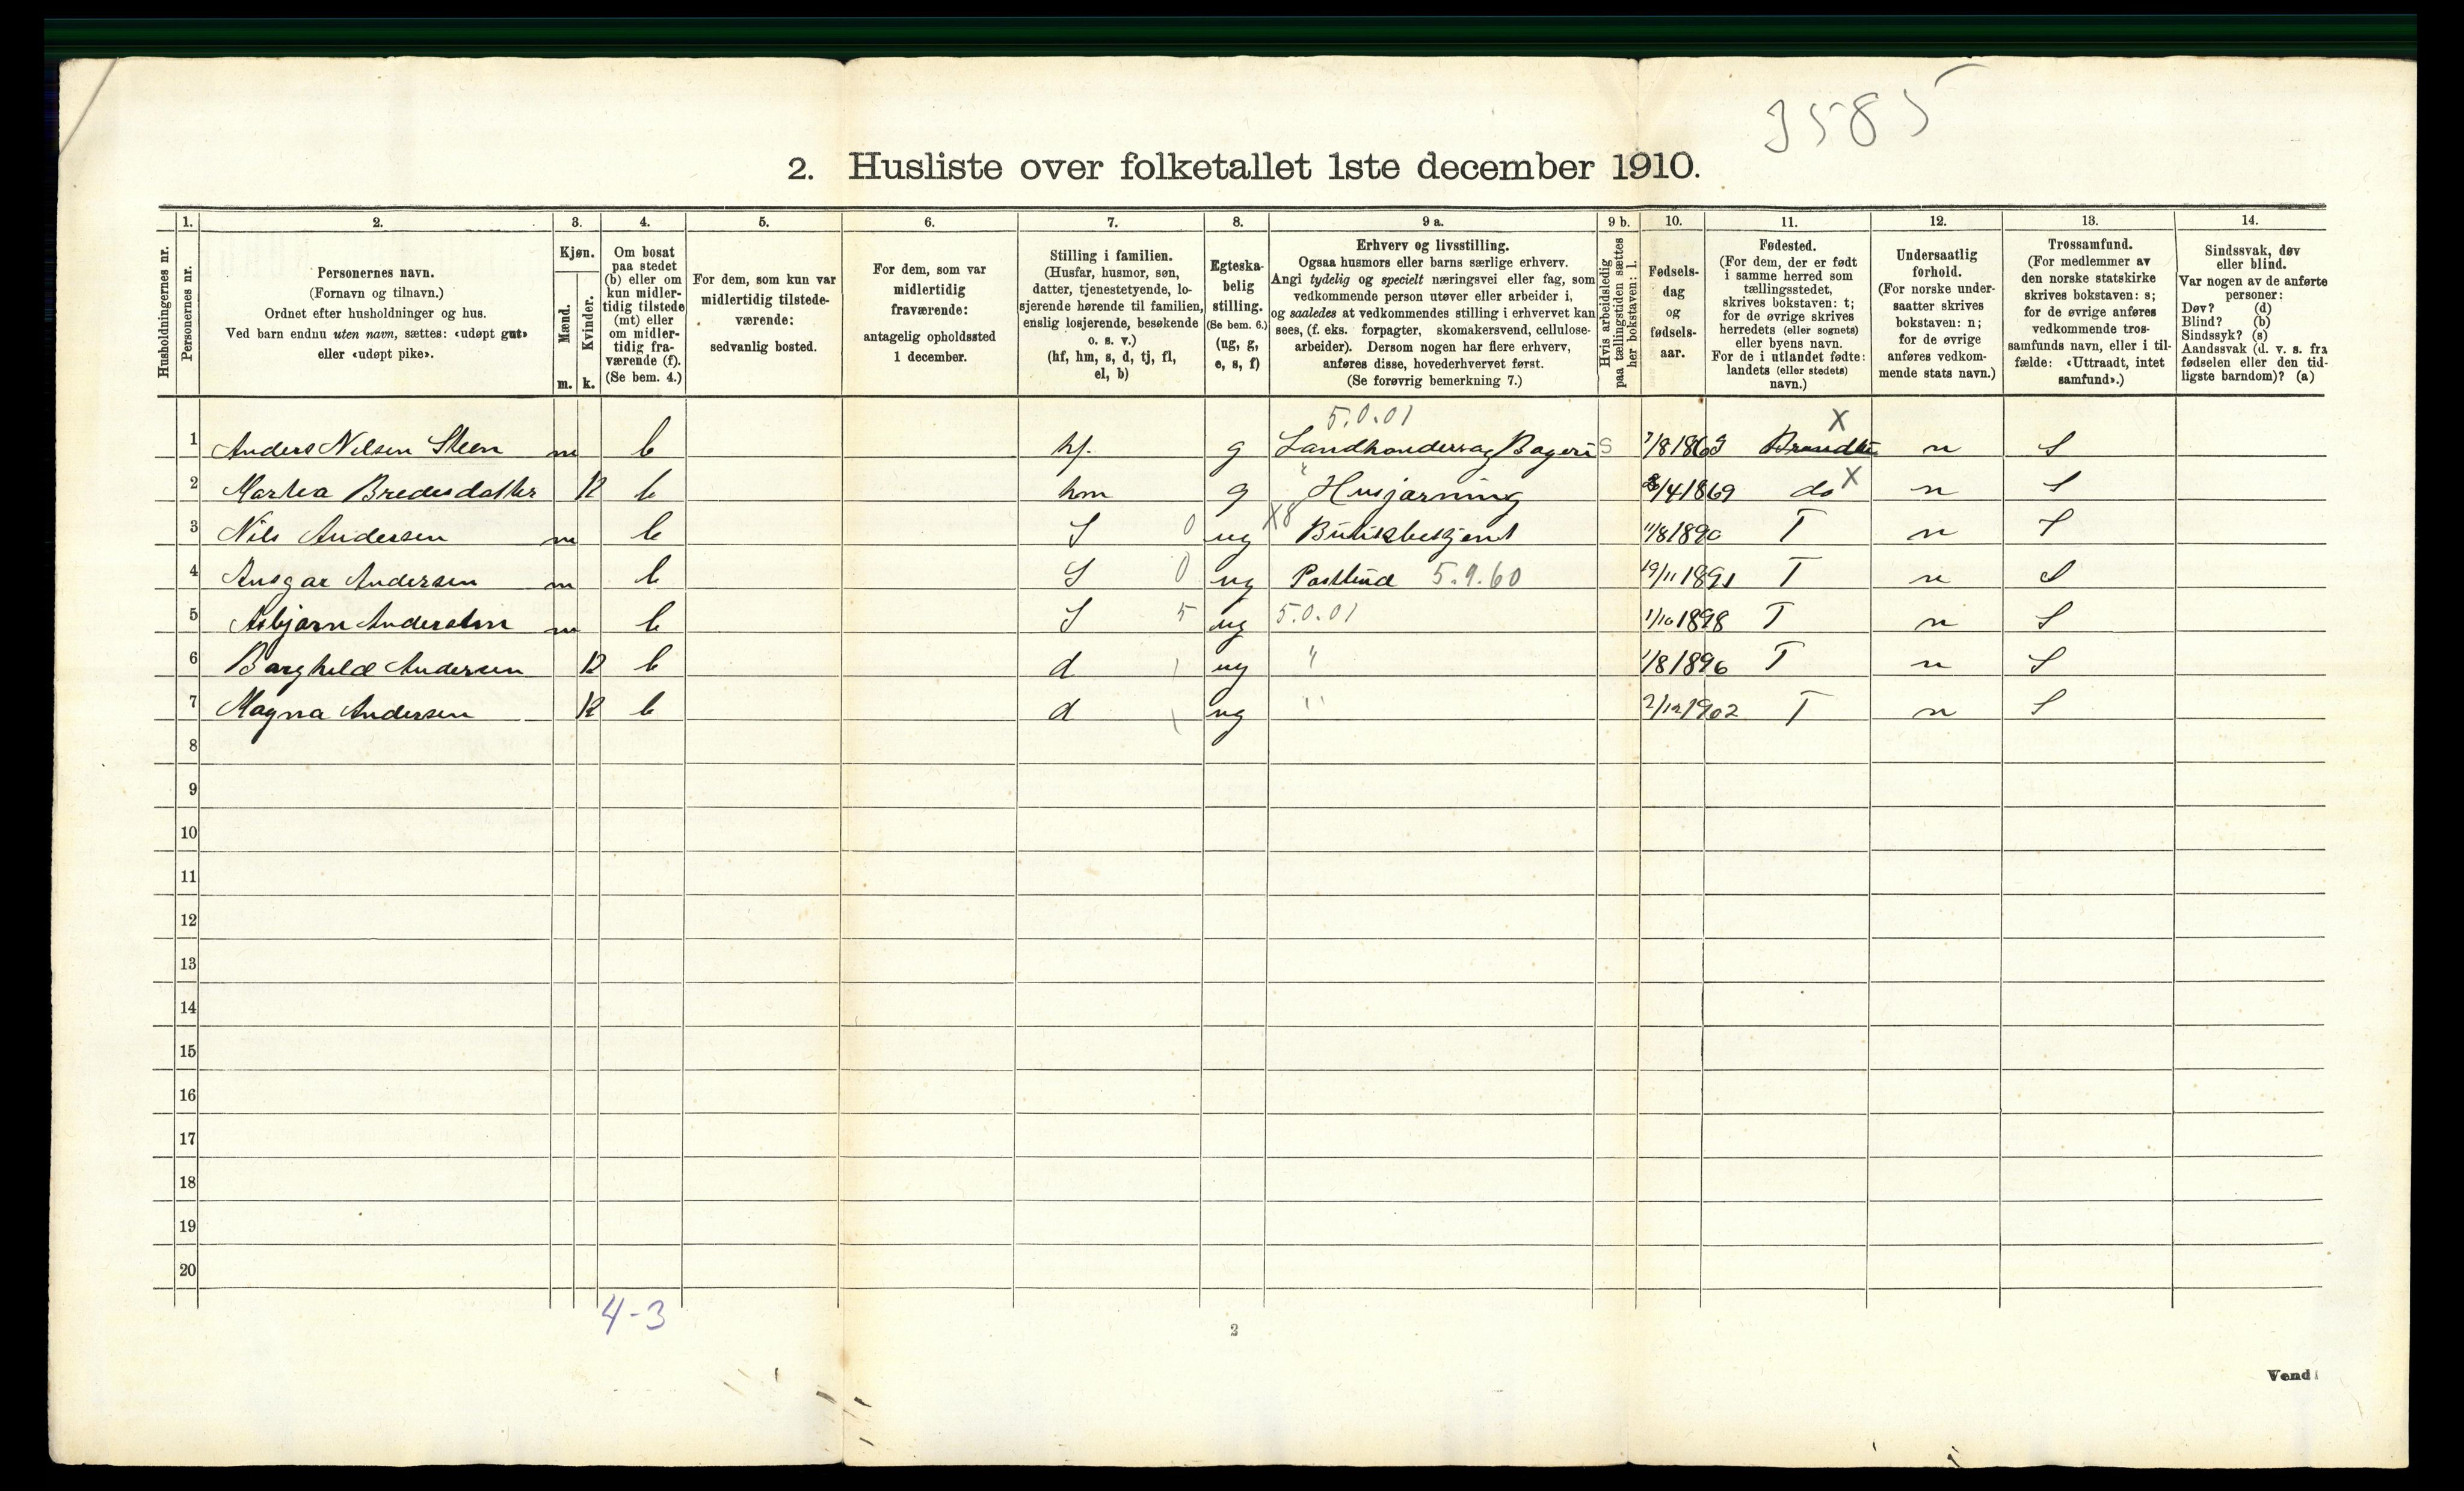 3585
2. Husliste over folketallet 1ste december 1910.
Husholdningernes nr.
1. Personernes nr.
2. Personernes navn. (Fornavn og tilnavn.) Ordnet efter husholdninger og hus. Ved barn endnu uten navn, sættes: «udøpt gut» eller «udøpt pike».
3. Kjøn. Mænd. m. Kvinder. k.
4. Om bosat paa stedet (b) eller om kun midlertidig tilstede (mt) eller om midlertidig fraværende (f). (Se bem. 4.)
5. For dem, som kun var midlertidig tilstedeværende: sedvanlig bosted.
6. For dem, som var midlertidig fraværende: antagelig opholdssted 1 december.
7. Stilling i familien. (Husfar, husmor, søn, datter, tjenestetyende, losjerende hørende til familien, enslig losjerende, besøkende o. s. v.) (hf, hm, s, d, tj, fl, el, b)
8. Egteskabelig stilling. (Se bem. 6.) (ug, g, e, s, f)
9 a. Erhverv og livsstilling. Ogsaa husmors eller barns særlige erhverv. Angi tydelig og specielt næringsvei eller fag, som vedkommende person utøver eller arbeider i, og saaledes at vedkommendes stilling i erhvervet kan sees, (f. eks. forpagter, skomakersvend, cellulosearbeider). Dersom nogen har flere erhverv, anføres disse, hovederhvervet først. (Se forøvrig bemerkning 7.)
9 b. Hvis arbeidsledig paa tællingstiden sættes her bokstaven: l.
10. Fødselsdag og fødselsaar.
11. Fødested. (For dem, der er født i samme herred som tællingsstedet, skrives bokstaven: t; for de øvrige skrives herredets (eller sognets) eller byens navn. For de i utlandet fødte: landets (eller stedets) navn.)
12. Undersaatlig forhold. (For norske undersaatter skrives bokstaven: n; for de øvrige anføres vedkommende stats navn.)
13. Trossamfund. (For medlemmer av den norske statskirke skrives bokstaven: s; for de øvrige anføres vedkommende trossamfunds navn, eller i tilfælde: «Uttraadt, intet samfund».)
14. Sindssvak, døv eller blind. Var nogen av de anførte personer: Døv? (d) Blind? (b) Sindssyk? (s) Aandssvak (d. v. s. fra fødselen eller den tidligste barndom)? (a)
5.0.01 X
1 Anders Nilsen Steen m b hf. g Landhandler og Bageri S 7/8 1863 n S
2 Martea Bredesdatter k b hm g " Husjærning 8/4 1869 do X n S
3 Nils Andersen m b S 0 ug X8 Butikbetjent 11/8 1890 T n S
4 Ansgar Andersen m b S 0 ug Postbud 5.9.60 19/11 1891 T n S
5 Asbjørn Andersen m b S 5 ug 5.0.01 1/10 1898 T n S
6 Borghild Andersen k b d 1 ug " 1/8 1896 T n S
7 Magna Andersen k b d 1 ug " 2/12 1902 T n S
8
9
10
11
12
13
14
15
16
17
18
19
20
4-3
2
Vend!